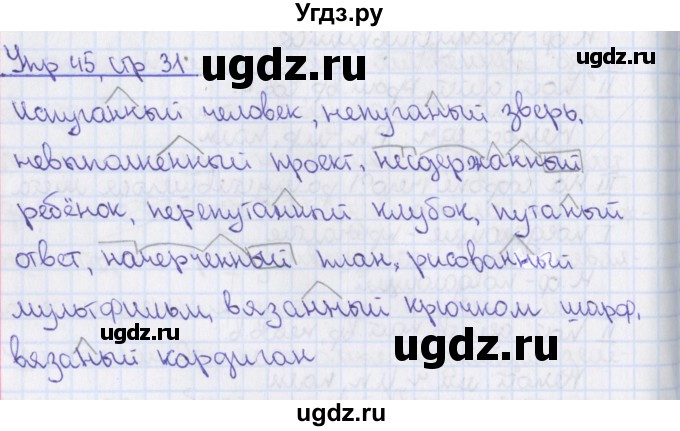 Угдз.ру
Упр 45, стр 31.
ugdz.ru
ugdz.ru
Испуганный человек, непуганый зверь,
невыполненный проект, несдержанный
ребёнок, перепутанный клубок, путаный
ответ, начерченный план, рисованный
мультфильм, вязанный крючком шарф,
вязаный кардиган
ugdz.ru
ugdz.ru
ugdz.ru